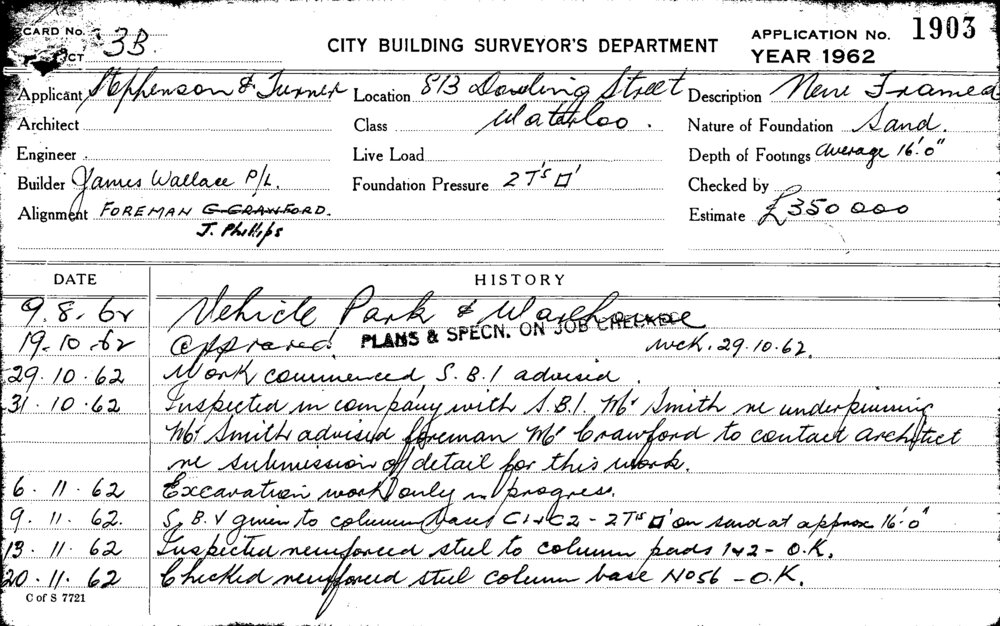 CARD No. 3B. CITY BUILDING SURVEYOR'S DEPARTMENT APPLICATION No. 1903
YEAR 1962
Applicant Stephenson & Turner Location 813 Dowling Street Description New Framed
Architect Class Waterloo. Nature of Foundation Sand.
Engineer Live Load Depth of Footings Average 16'.0"
Builder James Wallace P/L. Foundation Pressure 2 Ts □' Checked by
Alignment FOREMAN G CRAWFORD. Estimate £350 000
J. Phillips
DATE HISTORY
9.8.62 Vehicle Park & Warehouse
19.10.62 approved PLANS & SPECN. ON JOB CHECKED WCK. 29.10.62.
29.10.62 Work commenced S.B.I advised.
31.10.62 Inspected in company with S.B.I. Mr Smith re underpinning
Mr Smith advised foreman Mr Crawford to contact architect
re submission of detail for this work.
6.11.62 Excavation work only in progress.
9.11.62. S.B.V given to column bases C1+C2 - 2Ts □' on sand at approx 16'.0"
13.11.62 Inspected reinforced steel to column pads 1+2 - O.K.
20.11.62 Checked reinforced steel column base No56 - O.K.
C of S 7721